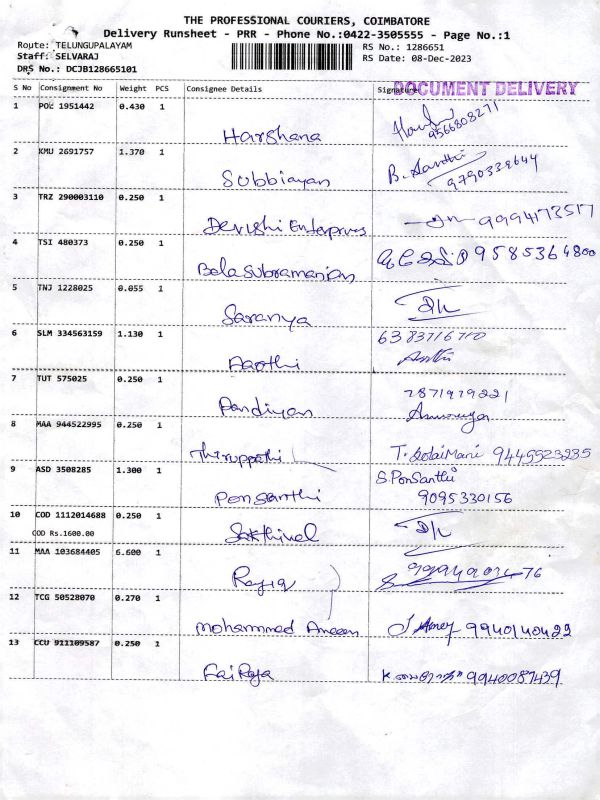 THE PROFESSIONAL COURIERS, COIMBATORE
Delivery Runsheet - PRR - Phone No.:0422-3505555 - Page No.:1
Route: TELUNGUPALAYAM
RS No.: 1286651
Staff: SELVARAJ
RS Date: 08-Dec-2023
DRS No.: DCJB128665101
DOCUMENT DELIVERY
S No Consignment No Weight PCS Consignee Details Signature
1 POL 1951442 0.430 1
Harshana 9566808271
2 KMU 2691757 1.370 1
Subbiayan B. Aarthi 9790338644
3 TRZ 290003110 0.250 1
Devishi Enterprises 9994173517
4 TSI 480373 0.250 1
Bala Subramanian 9585364800
5 TNJ 1228025 0.055 1
Saranya
6 SLM 334563159 1.130 1
6383716710
Aarthi
7 TUT 575025 0.250 1
7871979221
Pandiyan
8 MAA 944522995 0.250 1
Thiruppathi T. KolaiMani 9445523235
9 ASD 3508285 1.300 1
S. PonSanthi
Ponsanthi 9095330156
10 COD 1112014688 0.250 1
COD Rs.1600.00
Sakthivel
11 MAA 103684405 6.600 1
Rajiq
12 TCG 50528070 0.270 1
Mohammed Ameen 9940140422
13 CCU 911109587 0.250 1
Fai Raja 9940087439